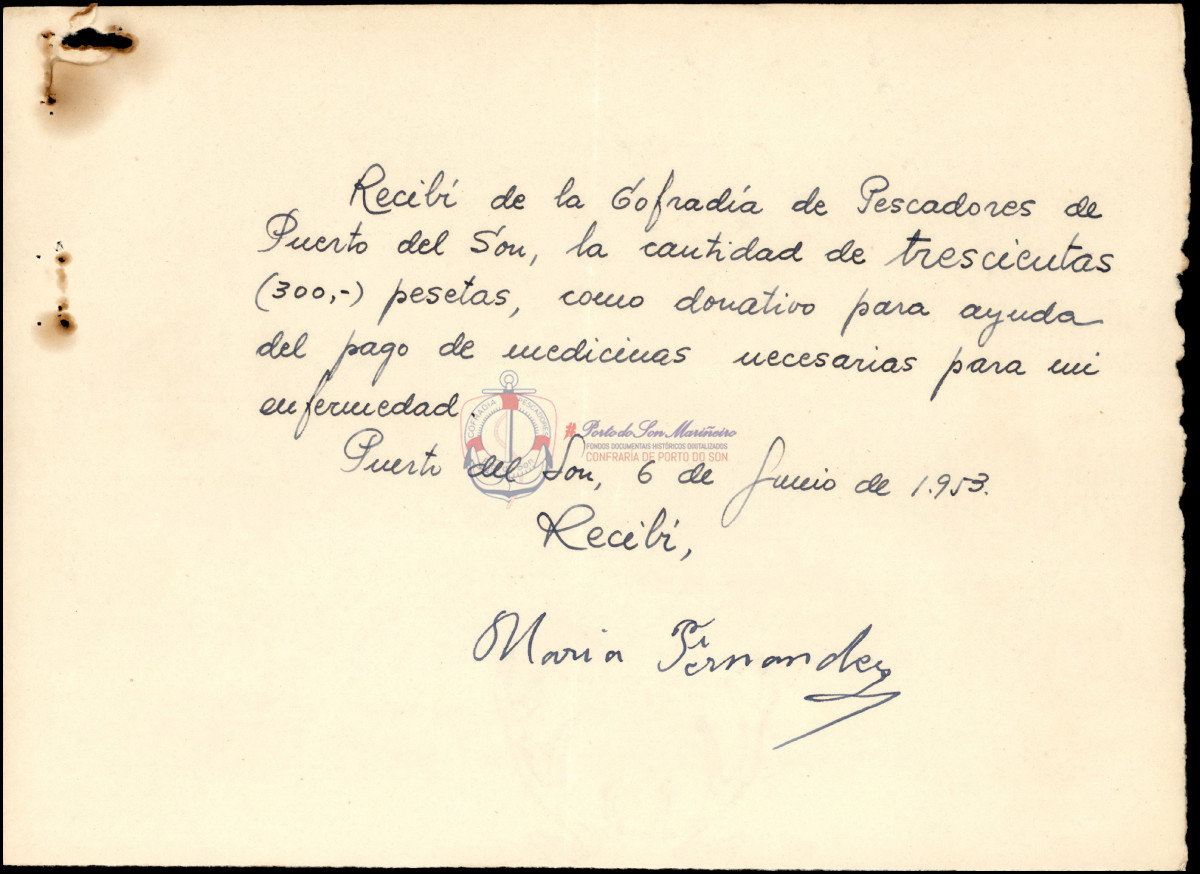 Recibí de la Cofradía de Pescadores de
Puerto del Son, la cantidad de trescientas
(300,-) pesetas, como donativo para ayuda
del pago de medicinas necesarias para mi
enfermedad.
COFRADIA PESCADORES
#Porto do Son Mariñeiro
FONDOS DOCUMENTAIS HISTÓRICOS DIXITALIZADOS
CONFRARÍA DE PORTO DO SON
Puerto del Son, 6 de Junio de 1.953.
Recibí,
Maria Fernandez